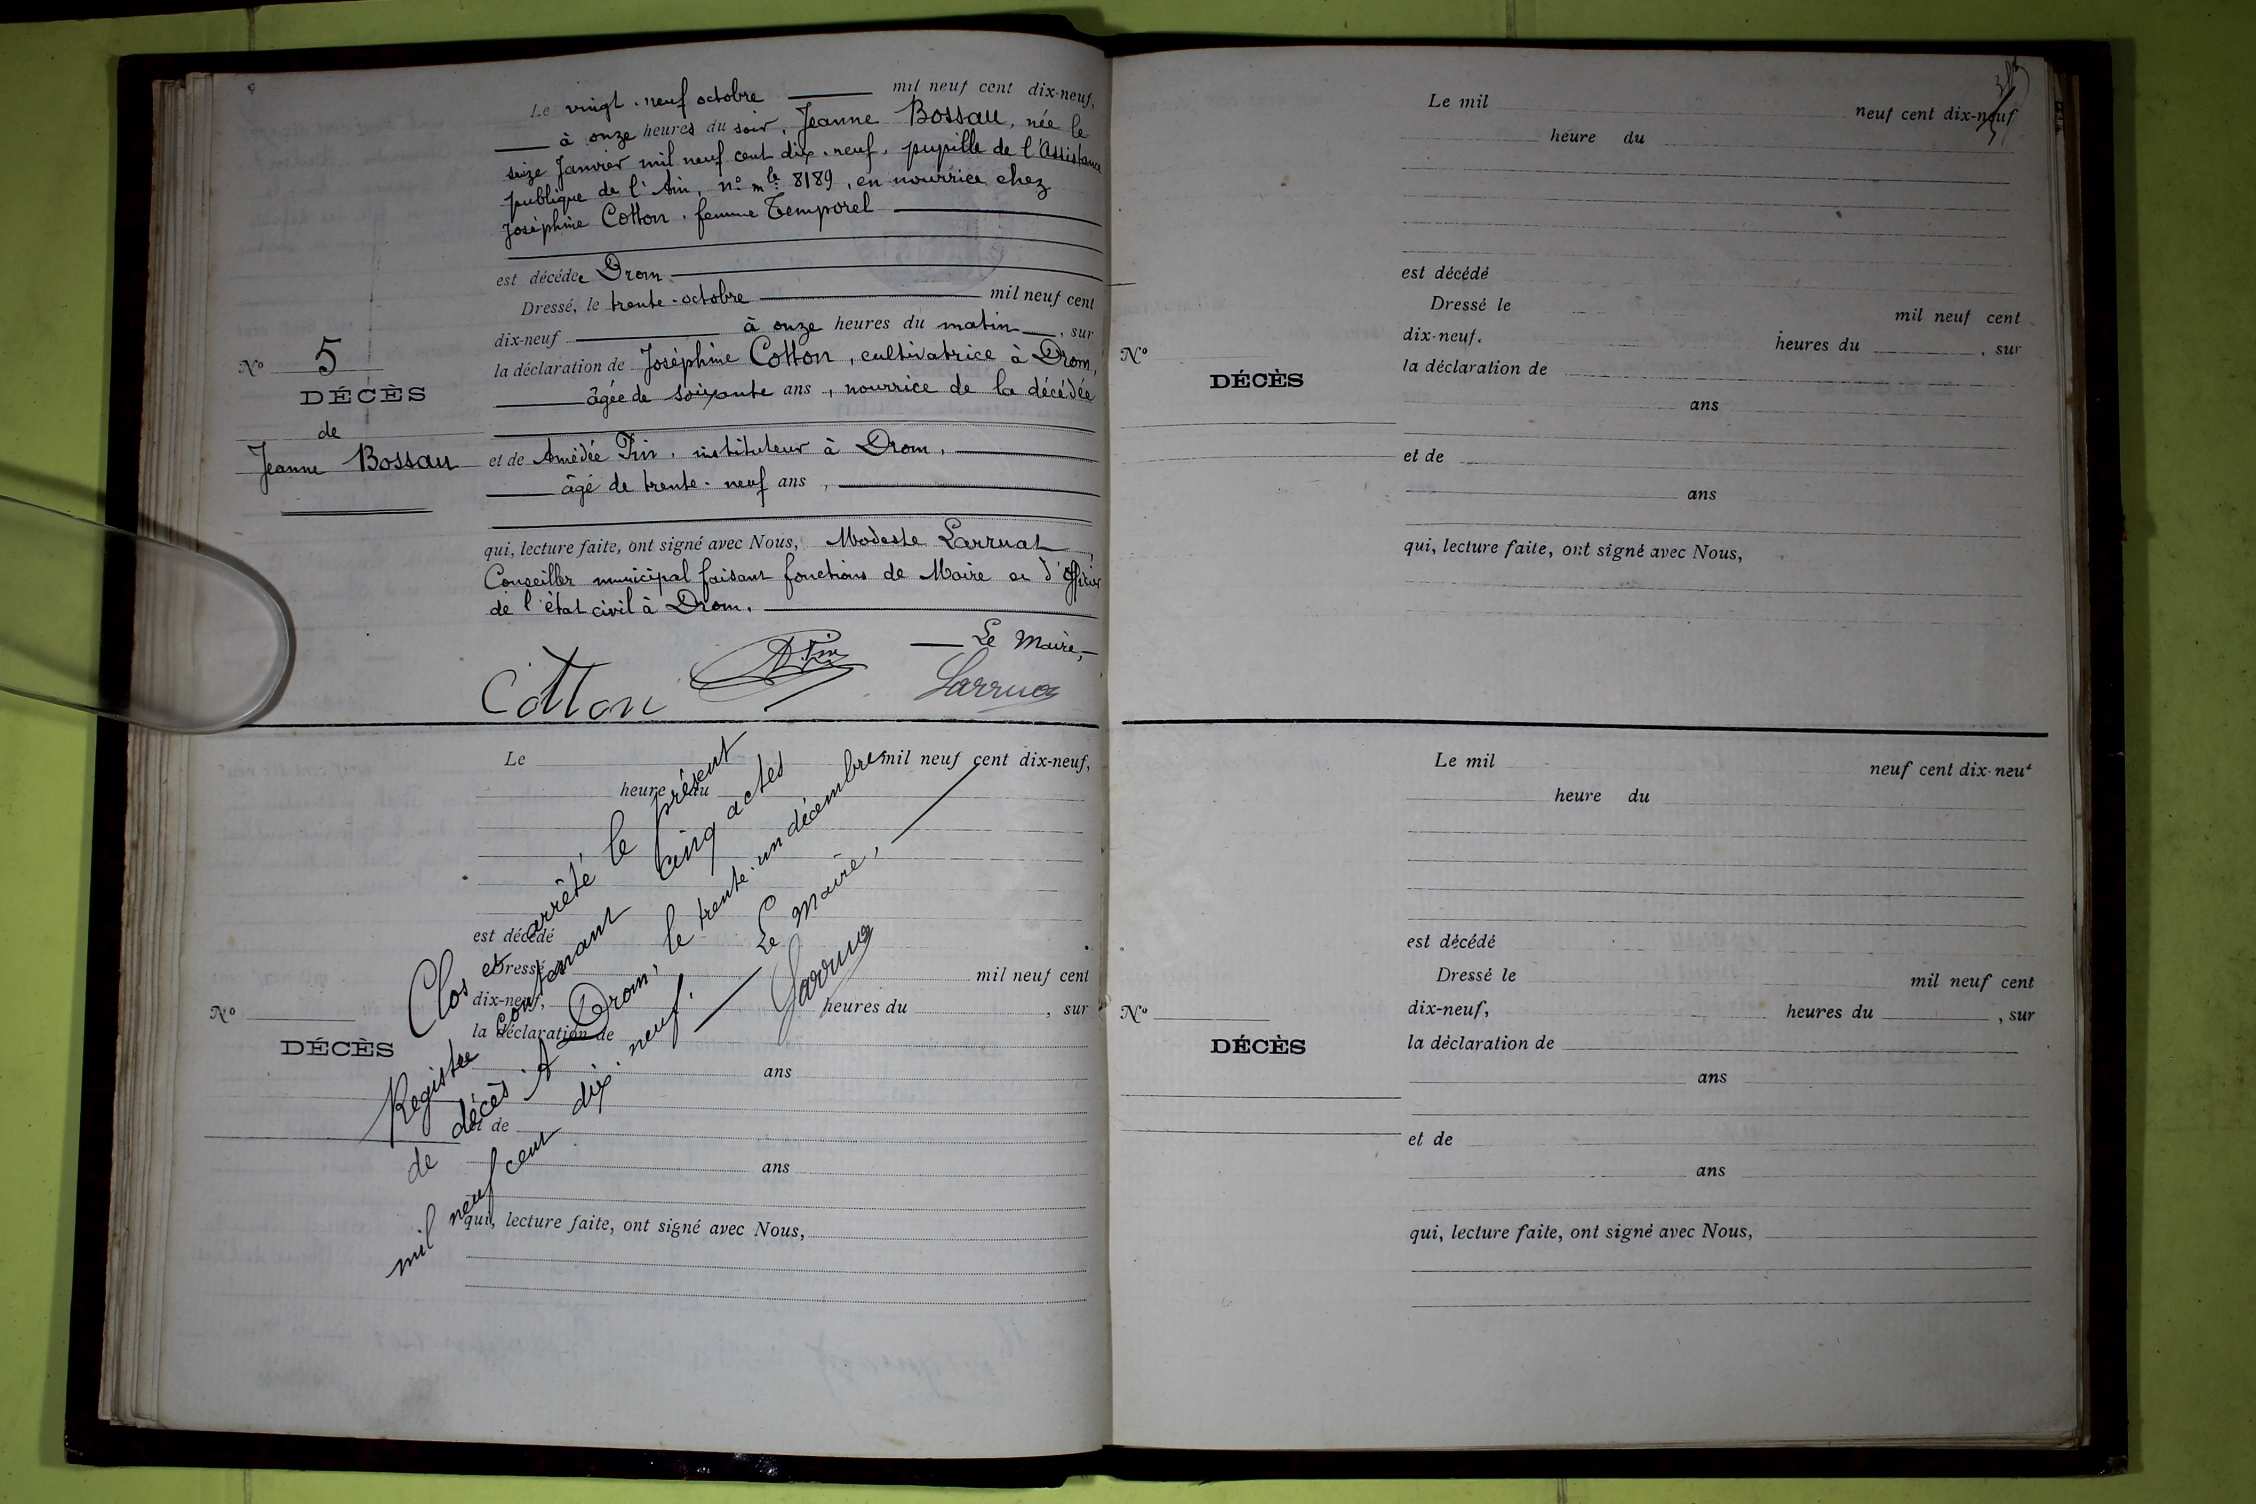 Le vingt-neuf octobre mil neuf cent dix-neuf,
à onze heures du soir, Jeanne Bossau, née le
seize Janvier mil neuf cent dix-neuf, pupille de l'Assistance
publique de l'Ain, no mle 8189, en nourrice chez
Joséphine Cotton, femme Temporel
est décédée Drom
Dressé, le trente-octobre mil neuf cent
dix-neuf à onze heures du matin, sur
la déclaration de Joséphine Cotton, cultivatrice à Drom,
âgée de soixante ans, nourrice de la décédée
et de Amédée Pin, instituteur à Drom,
âgé de trente-neuf ans,
qui, lecture faite, ont signé avec Nous, Modeste Larruat,
Conseiller municipal faisant fonctions de Maire et d'Officier
de l'état civil à Drom.
Le Maire,
Cotton
A. Pin
No 5
DÉCÈS
de
Jeanne Bossau
Le mil neuf cent dix-neuf,
heure du
est décédé
Dressé mil neuf cent
dix-neuf, heures du , sur
la déclaration de
ans
et de
ans
qui, lecture faite, ont signé avec Nous,
No
DÉCÈS
Clos et arrêté le présent
Registre contenant cinq actes
de décès. A Drom, le trente-un décembre
mil neuf cent dix-neuf.
Le Maire,
Le mil neuf cent dix-neuf
heure du
est décédé
Dressé le mil neuf cent
dix-neuf. heures du , sur
la déclaration de
ans
et de
ans
qui, lecture faite, ont signé avec Nous,
No
DÉCÈS
Le mil neuf cent dix-neuf
heure du
est décédé
Dressé le mil neuf cent
dix-neuf, heures du , sur
la déclaration de
ans
et de
ans
qui, lecture faite, ont signé avec Nous,
No
DÉCÈS